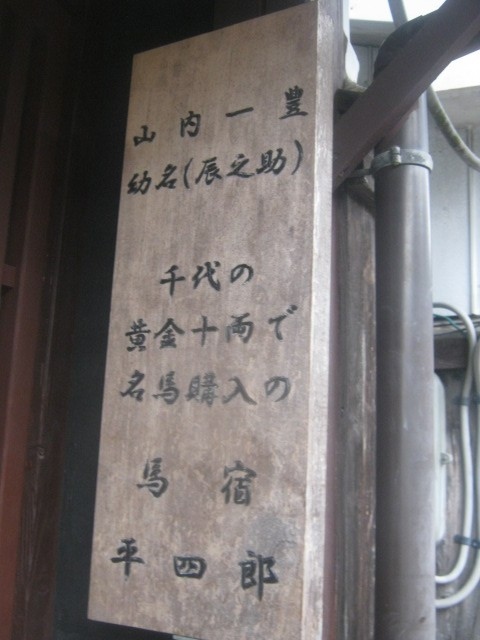 山内一豊
幼名(辰之助)
千代の
黄金十両で
名馬購入の
馬宿
平四郎